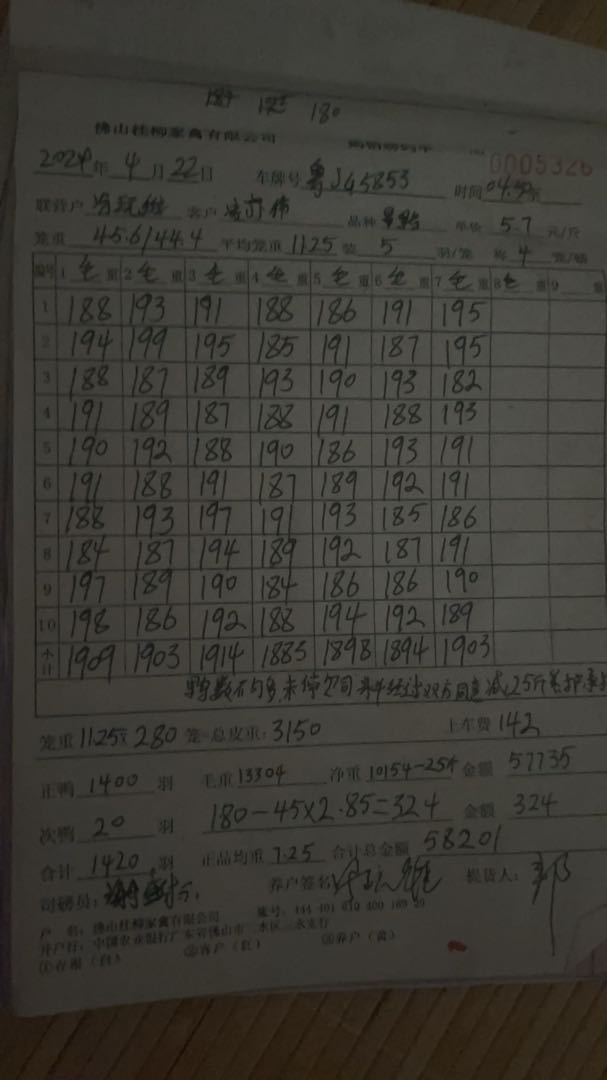 187 125 180
佛山桂柳家禽有限公司 0005326
2024年 4月 22日 车牌号 粤J45853 时间 04:50
联营户 客户 品种 单价 5.7 元/斤
笼重 45.6/44.4 平均笼重 11.25 装 5 羽/笼 称 4 笼/磅
编号 1 毛重 2 毛重 3 毛重 4 毛重 5 毛重 6 毛重 7 毛重 8 毛重 9 重
1 188 193 191 188 186 191 195
2 194 199 195 185 191 187 195
3 188 187 189 193 190 193 182
4 191 189 187 188 191 188 193
5 190 192 188 190 186 193 191
6 191 188 191 187 189 192 191
7 188 193 197 191 193 185 186
8 184 187 194 189 192 187 191
9 197 189 190 184 186 186 190
10 198 186 192 188 194 192 189
小计 1909 1903 1914 1883 1898 1894 1903
双方同意减25斤
笼重 11.25 × 280 笼=总皮重: 3150 上车费 142
正鸭 1400 羽 毛重 13304 净重 10154-25斤 金额 57735
次鸭 20 羽 180-45×2.85=324 金额 324
合计 1420 羽 正品均重 7.25 合计总金额 58201
司磅员: 养户签名 提货人: 郑
户 名: 佛山桂柳家禽有限公司 账号: 444 401 010 400 169 20
开户行: 中国农业银行广东省佛山市三水区三水支行
①存根（白） ②客户（红） ③养户（黄）